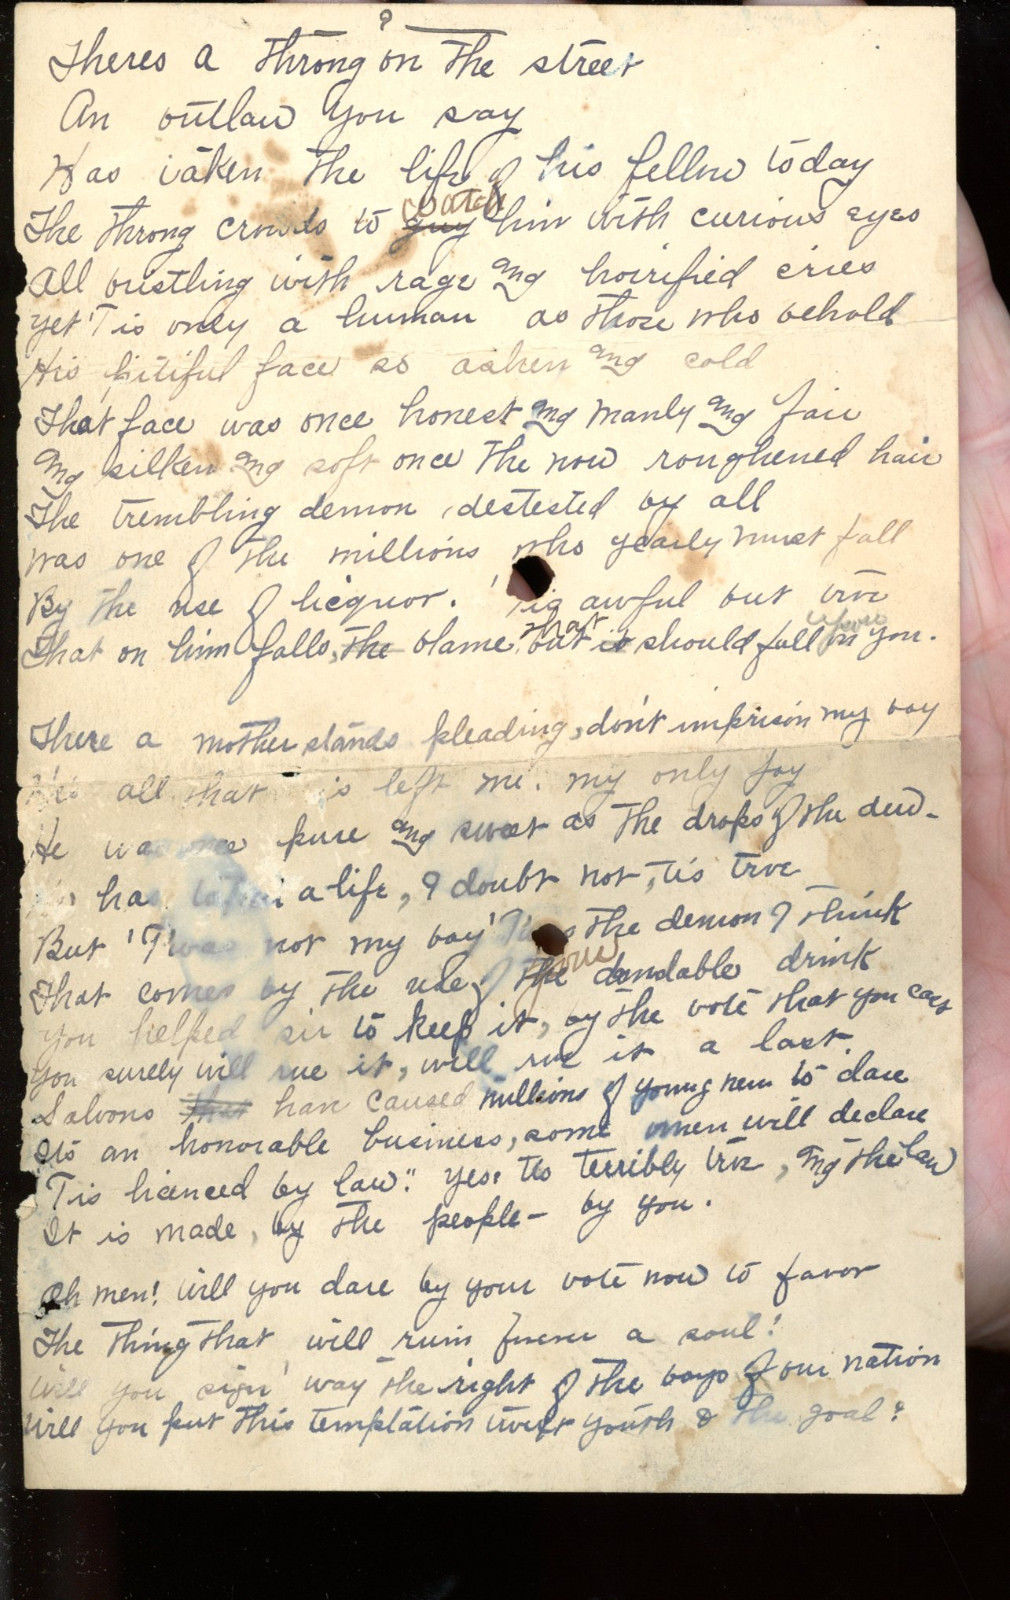 Theres a throng on the street
?
An outlaw you say
Has taken the life of his fellow today
The throng crowds to guy watch him with curious eyes
All bustling with rage and horrified cries
Yet 'Tis only a human as those who behold
His pitiful face so ashen and cold
That face was once honest and manly and fair
And silken and soft once the now roughened hair
The trembling demon, destested by all
Was one of the millions who yearly must fall
By the use of licquor. 'Tis awful but true
That on him falls, the blame but that it should fall on upon you.
There a mother stands pleading, don't imprison my boy
He's all that is left me. my only joy
He was once pure and sweet as the drops of the dew-
has taken a life, I doubt not, tis true
But 'Twas not my boy 'Twas the demon I think
That comes by the use of the your damdable drink
You helped sir to keep it, by the vote that you cast
You surely will rue it, will rue it a last.
Saloons that have caused millions of young men to dare
Its an honorable business, some men will declare
'Tis licenced by law." Yes: tis terribly true, and the law
It is made, by the people- by you.
Oh men! will you dare by your vote now to favor
The thing that will ruin forever a soul!
Will you sign 'way the right of the boys of our nation
Will you put this temptation twixt youth & the goal?